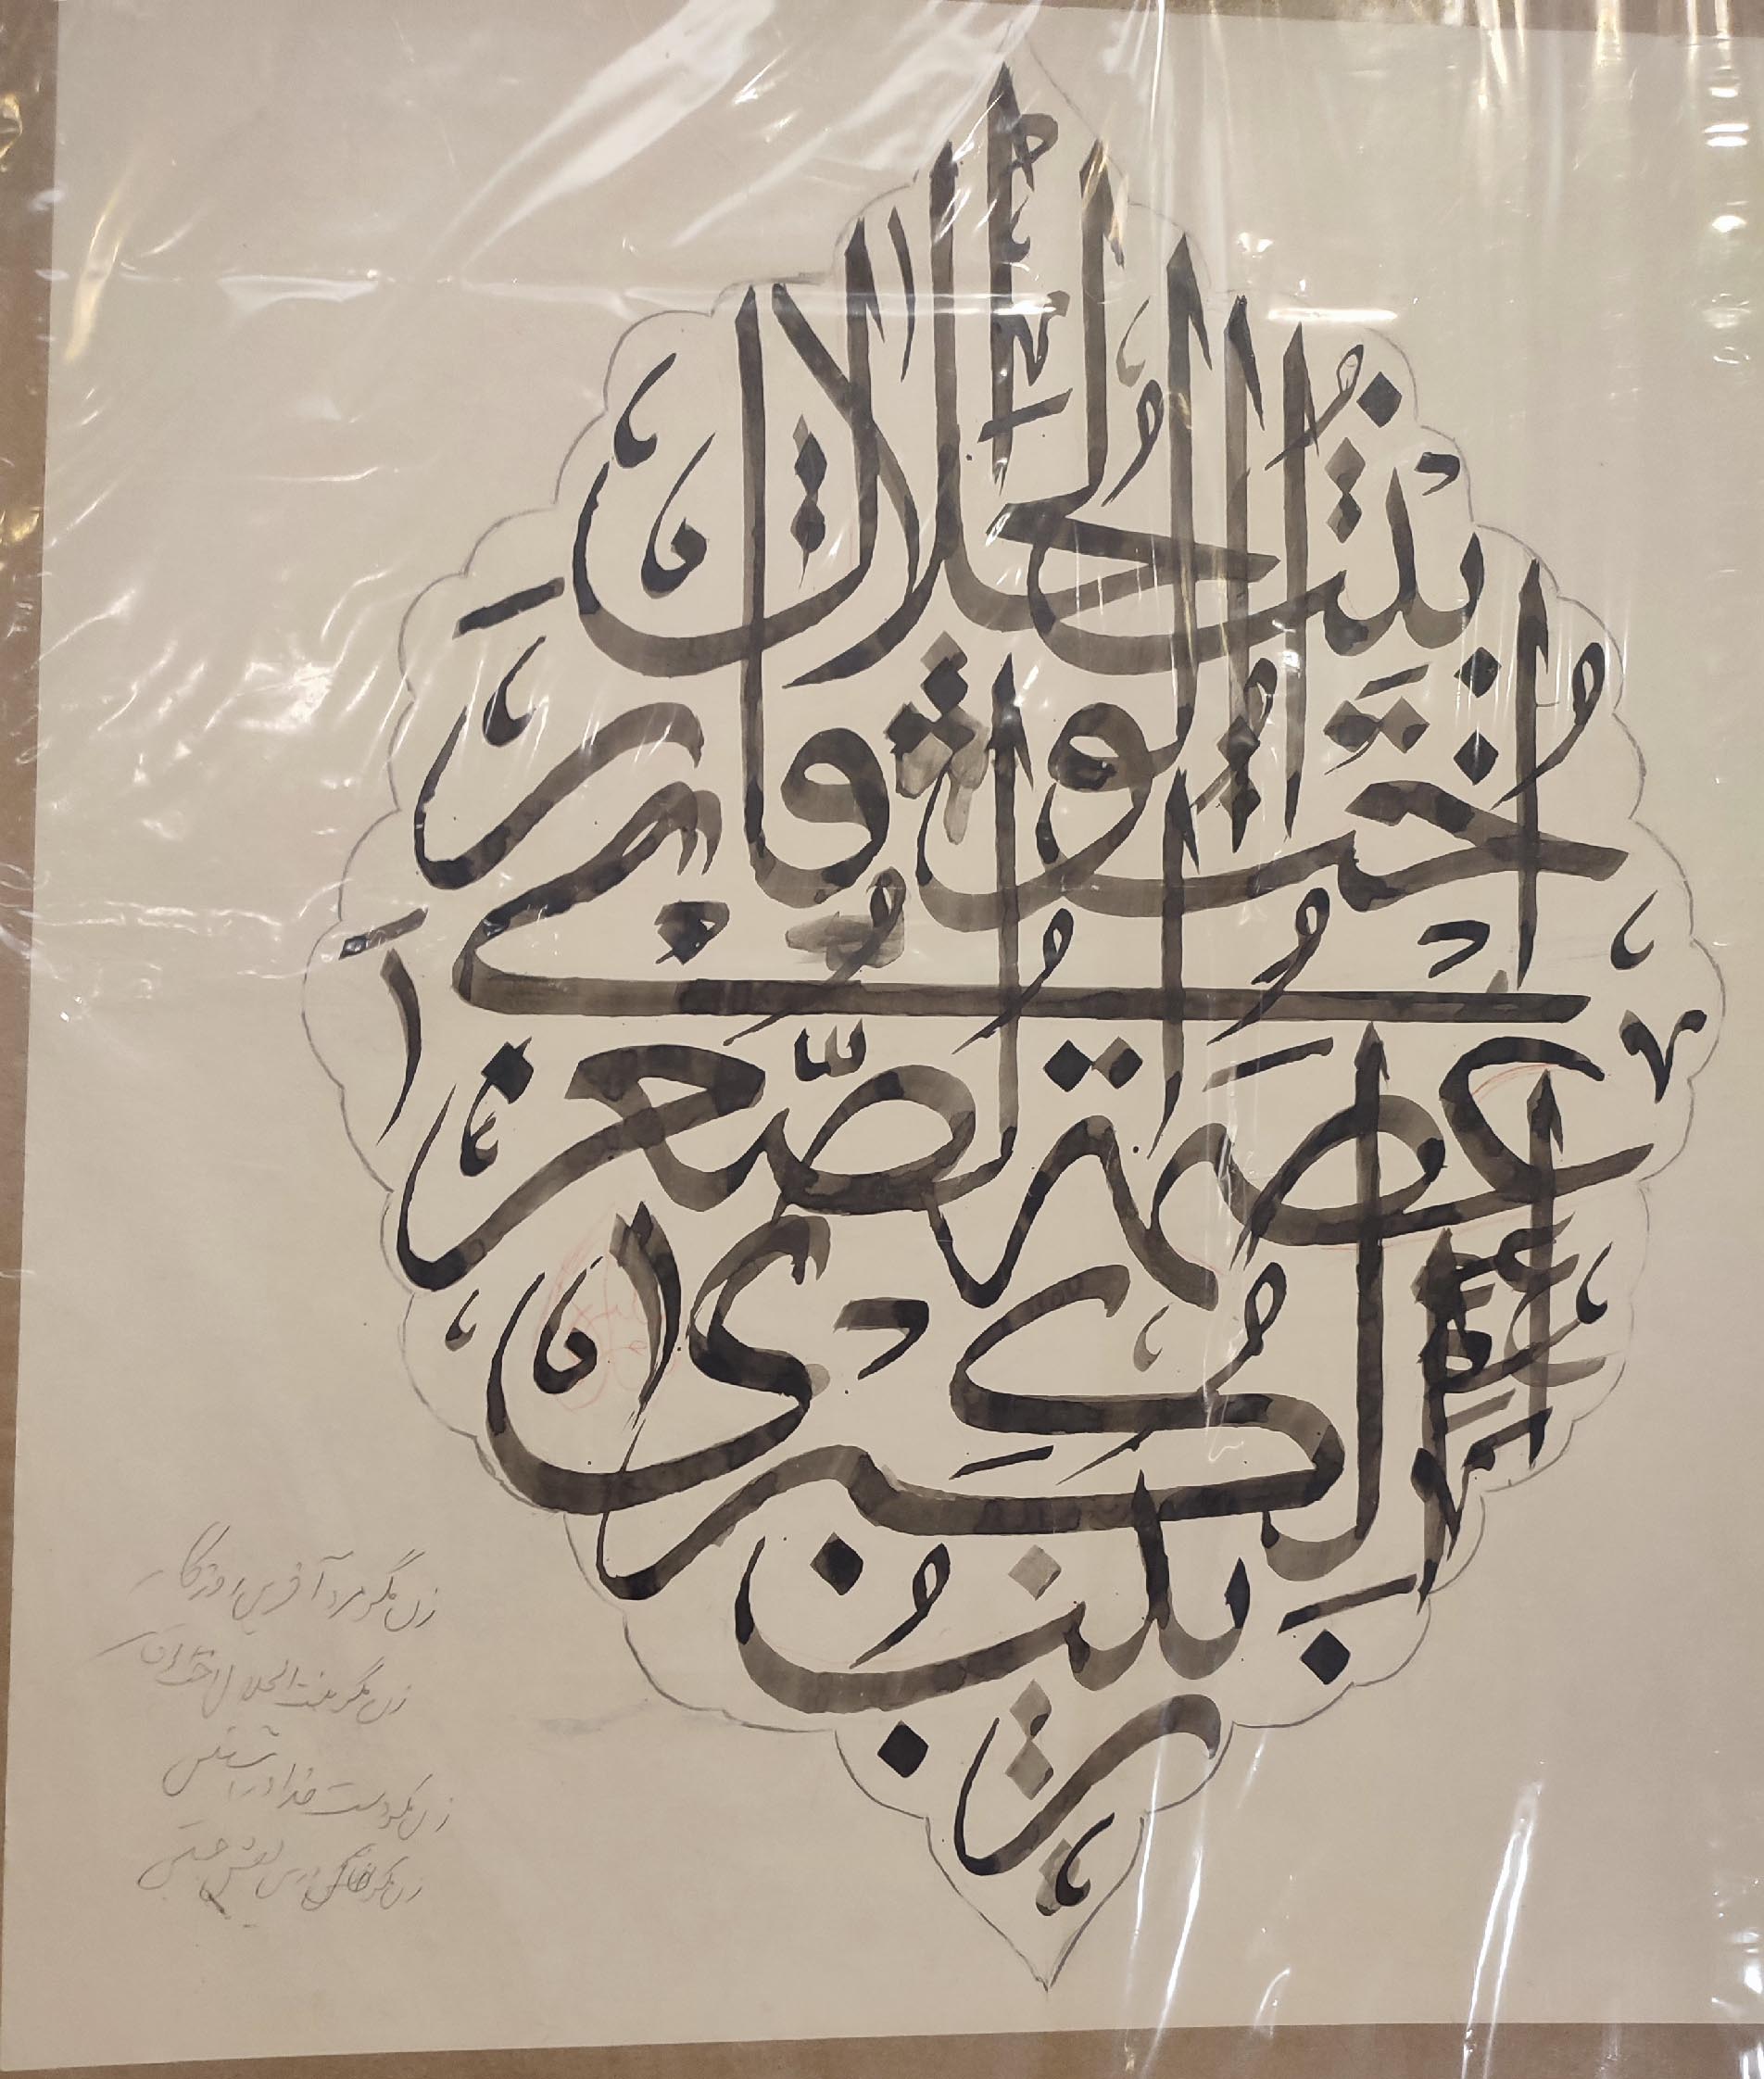 بنت الجلال
أخت الوقار
عصمة الصغرى
الكبرى
زينب
زن مگو مرد آفرین روزگار
زن مگو بنت الجلال اخت الوقار
زن مگو دست خدا در آستین
زن مگو خاک درش نقش جبین